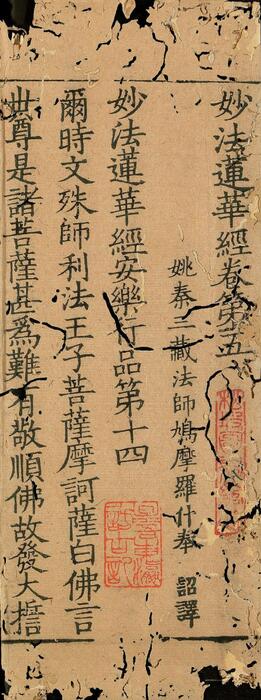 妙法蓮華經卷第五
姚秦三藏法師鳩摩羅什奉 詔譯
妙法蓮華經安樂行品第十四
爾時文殊師利法王子菩薩摩訶薩白佛言
世尊是諸菩薩甚爲難有敬順佛故發大誓